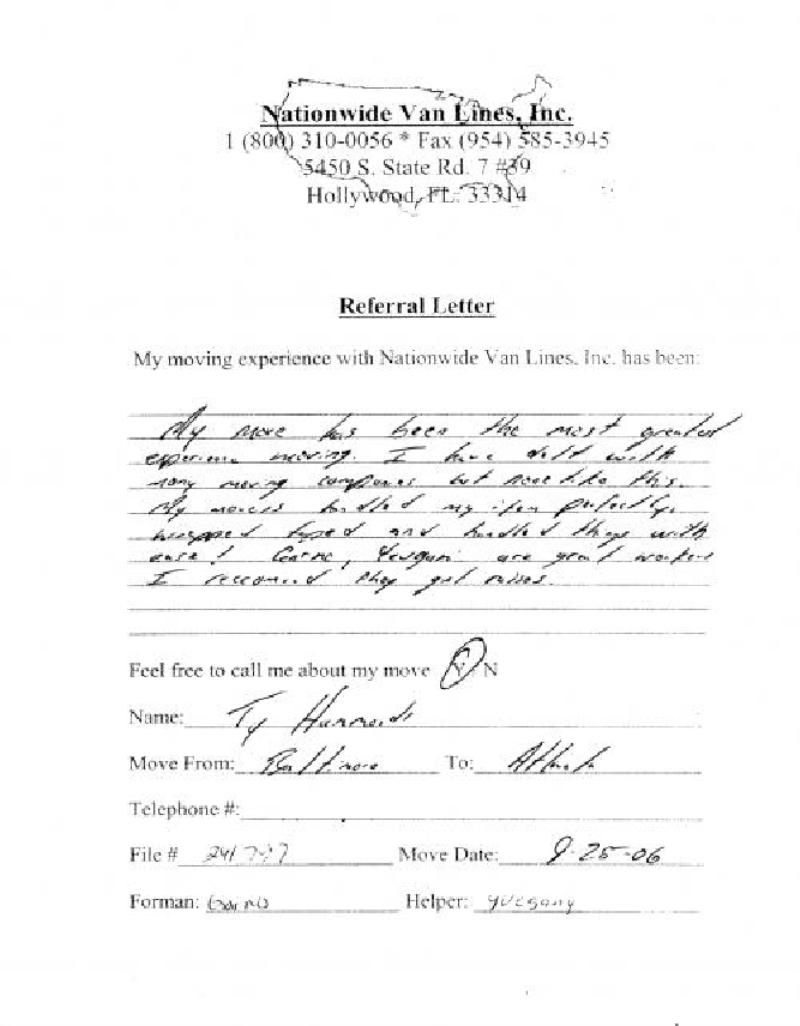 Nationwide Van Lines, Inc.
1 (800) 310-0056 * Fax (954) 585-3945
5450 S. State Rd. 7 #39
Hollywood, FL. 33314
Referral Letter
My moving experience with Nationwide Van Lines, Inc. has been:
My move has been the most greatest
moving. I have with
many moving but like this.
My movers handled my perfectly,
wrapped taped and handled things with
ease! are great workers
I they get raises.
Feel free to call me about my move Y N
Name: Ty
Move From: Baltimore To: Atlanta
Telephone #:
File # 241797 Move Date: 9-25-06
Forman: Helper: